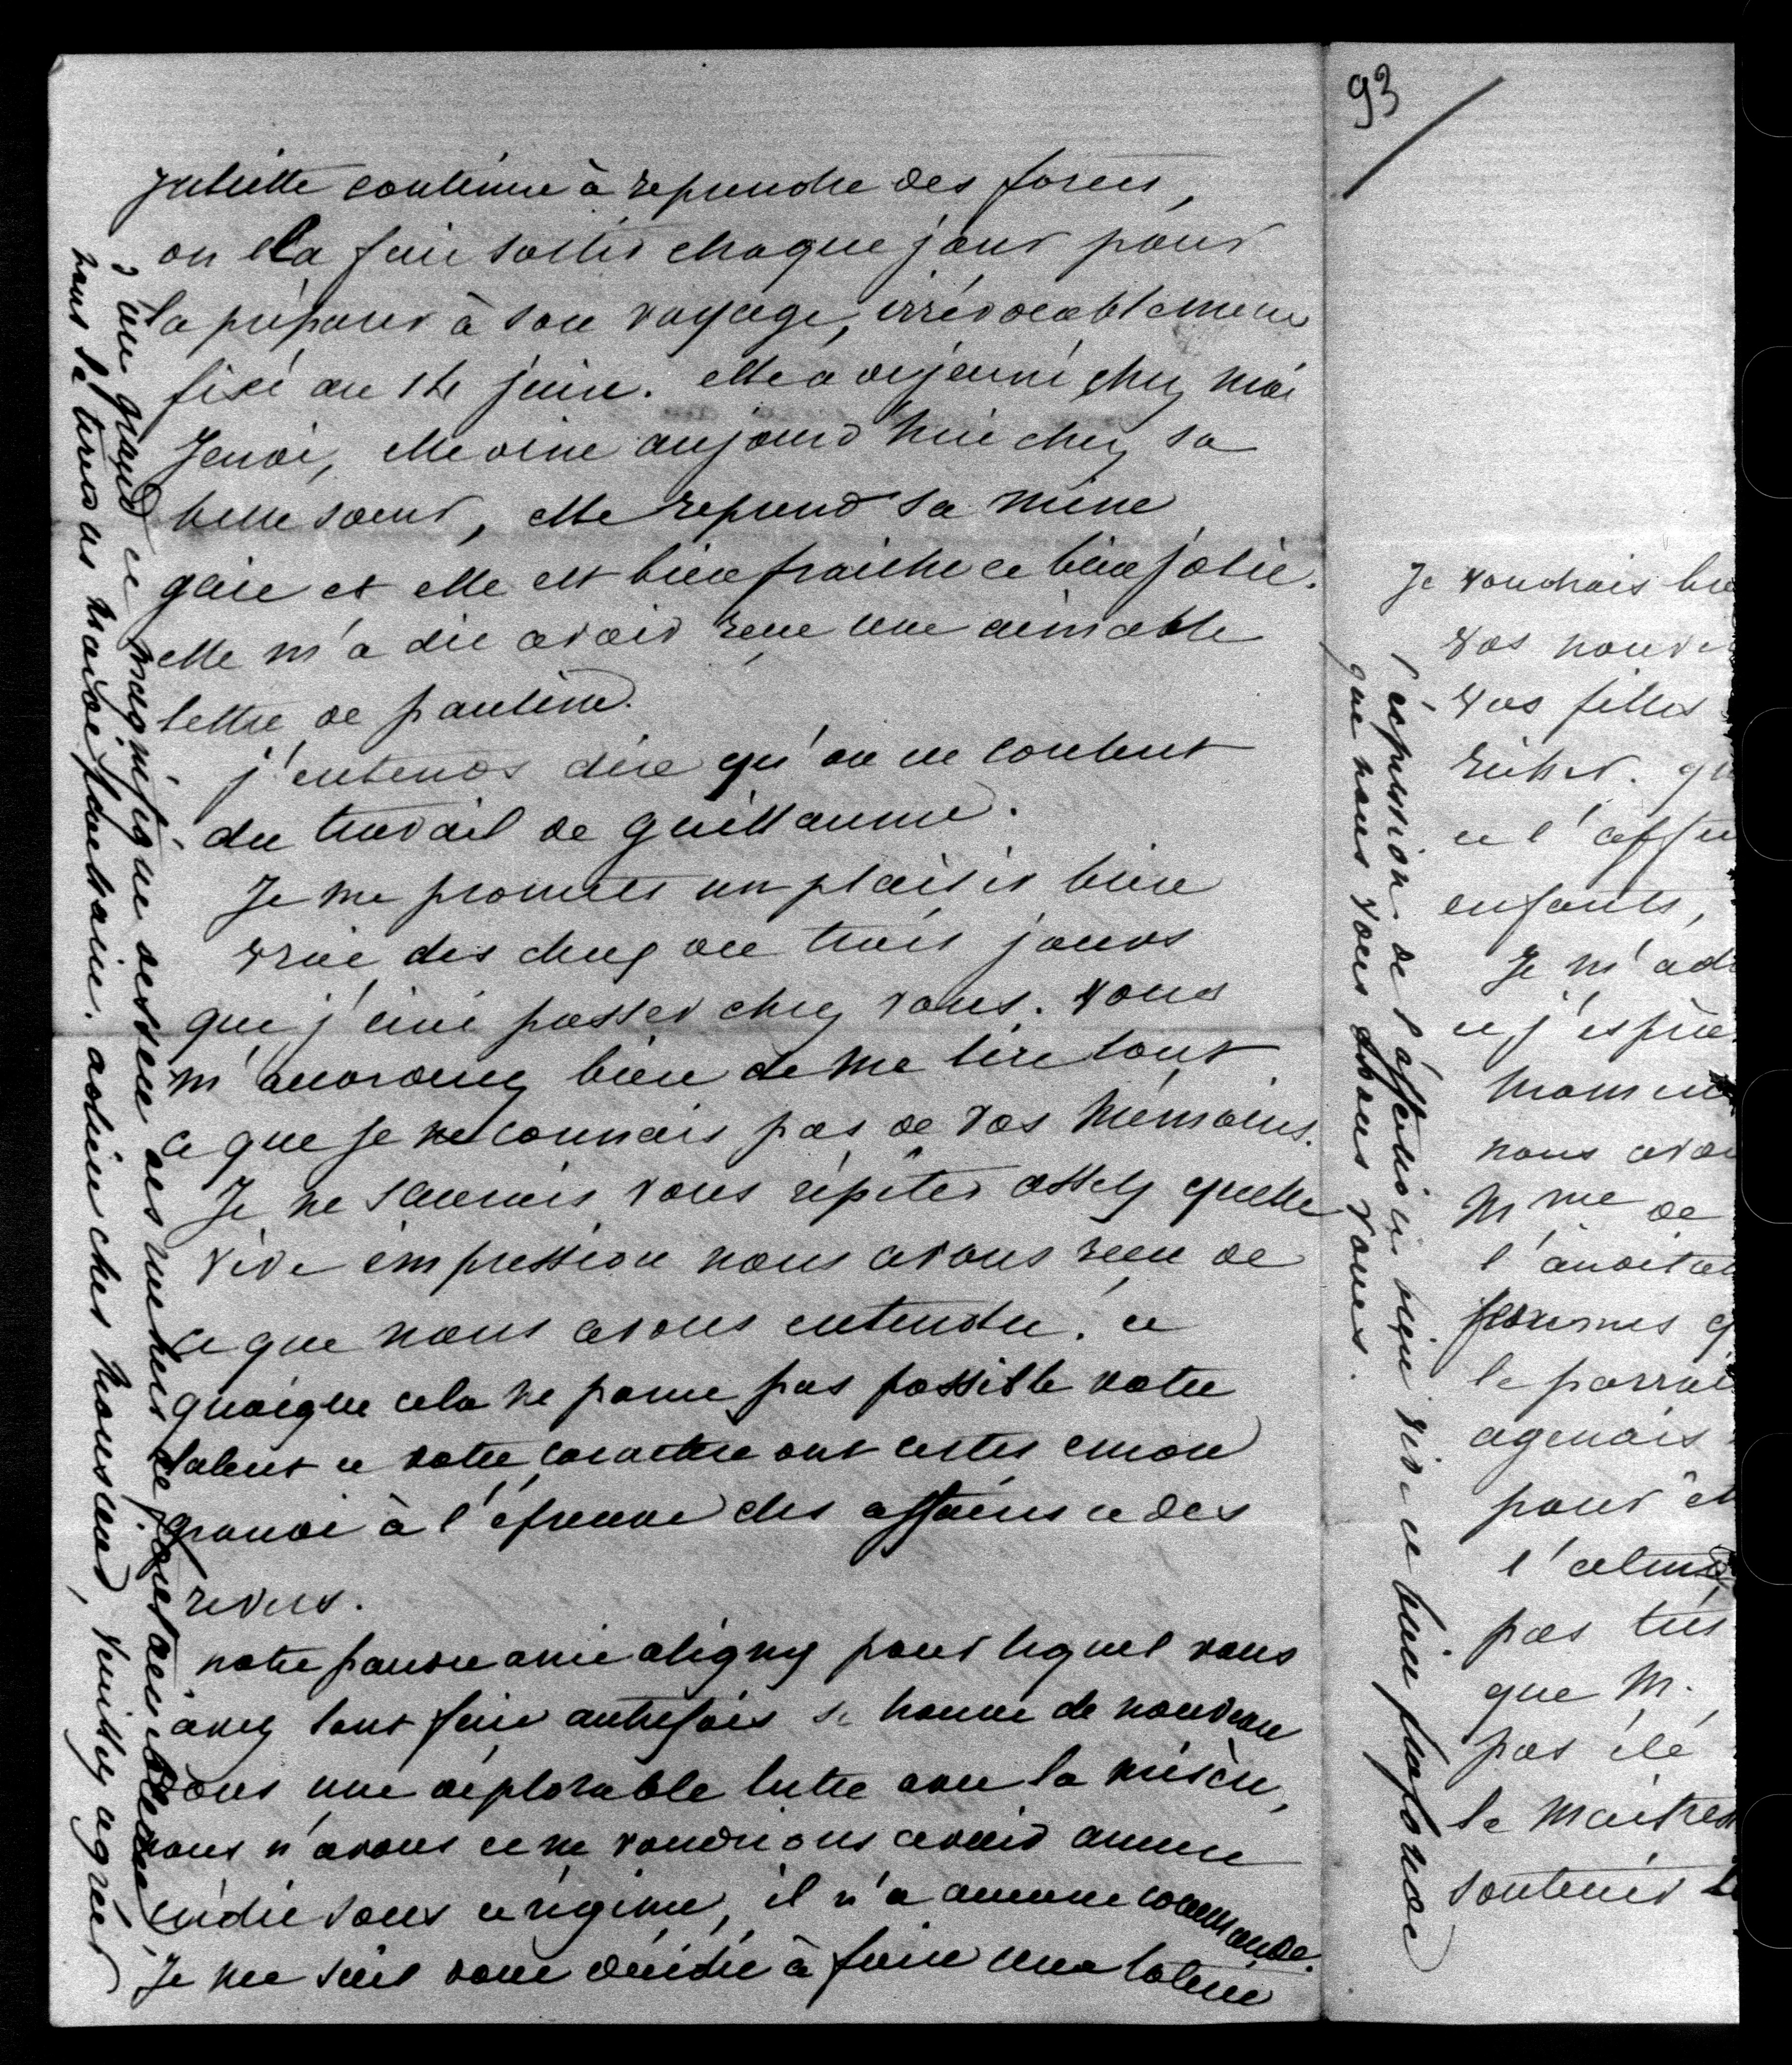 juliette continue à reprendre des forces,
on la fait sortir chaque jour pour
la préparer à son voyage, irrévocablement
fixé au 14 juin. elle a déjeuné chez moi
jeudi, elle dine aujourd'hui chez sa
belle soeur, elle reprend sa mine
gaie et elle est bien fraiche et bien jolie.
elle m'a dit avoir reçu une aimable
lettre de pauline.
j'entends dire qu'on est content
du travail de guillaume.
Je me promets un plaisir bien
vrai des deux ou trois jours
que j'irai passer chez vous. vous
m'accorderez bien de me lire tout
ce que je ne connais pas de vos mémoires.
Je ne saurais vous répéter assez quelle
vive impression nous avons reçu de
ce que nous avons entendu. et
quoique cela ne parut pas possible votre
talent et votre caractère ont certes encore
grandi à l'épreuve des affaires et des
revers.
notre pauvre ami aligny pour lequel vous
avez tant fait autrefois se trouve de nouveau
dans une déplorable lutte avec la misère,
nous n'avons et ne voudrions avoir aucun
crédit sous ce régime, il n'a aucune commande.
Je me suis donc décidée à faire une loterie
d'un grand et magnifique dessein
nous le tirerons adieu cher monsieur, veuillez agréer
l'expression de l'affection si vive et bien profonde
que nous vous avons vouée.
93
Je voudrais
vos
vos filles
et l'
enfants,
Je m'
et j'
nous
Mme de
l'
le
pour
l'
pas
que M.
pas été
le
soutenir